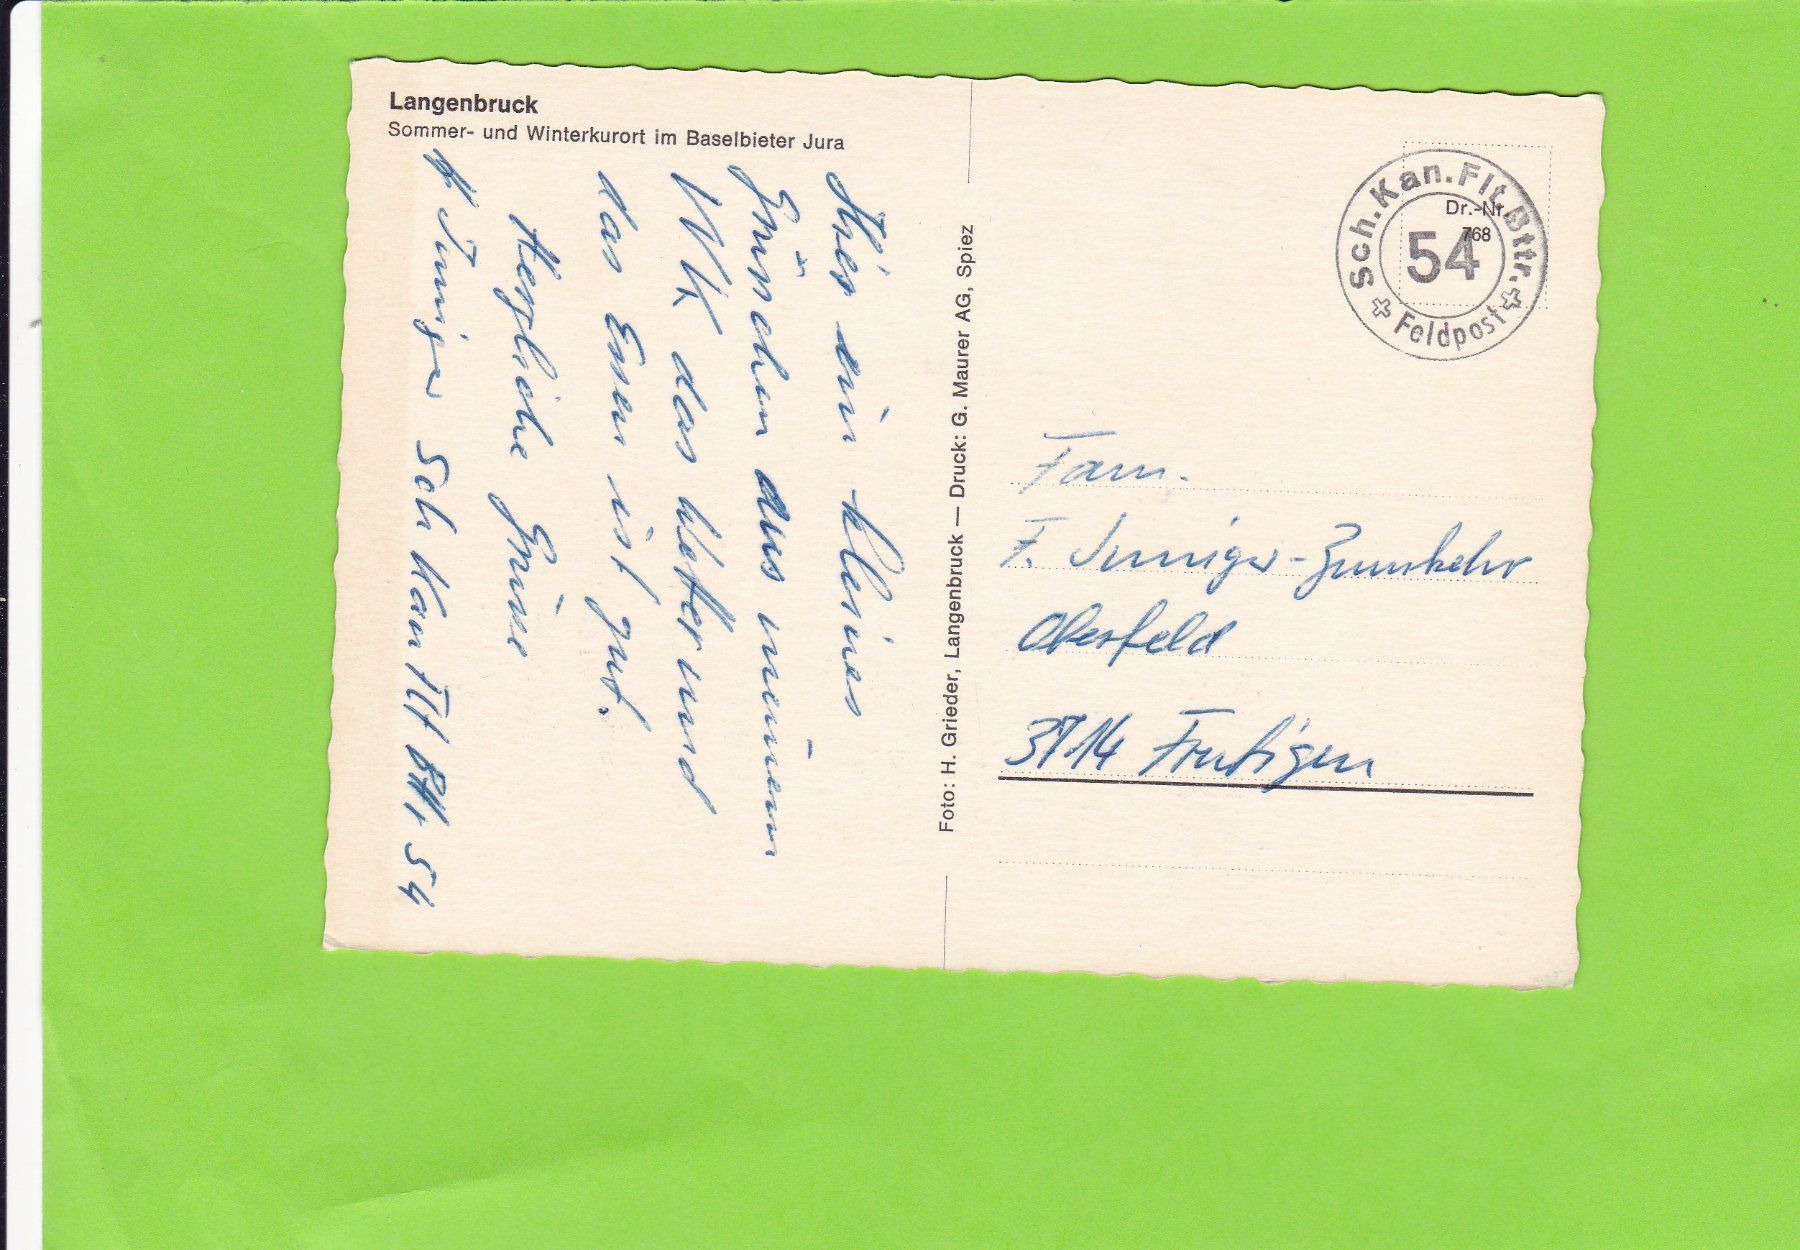 Langenbruck
Sommer- und Winterkurort im Baselbieter Jura
Hier ein kleines
Grüschen aus meinem
WK das Wetter und
das Essen ist gut.
Herzliche Grüsse
Sch Kan Flt Bttr 54
Foto: H. Grieder, Langenbruck — Druck: G. Maurer AG, Spiez
Sch. Kan. Flt. Bttr.
54
Feldpost
Dr.-Nr.
768
Fam.
F. Inniger-Zumkehr
Oberfeld
3714 Frutigen